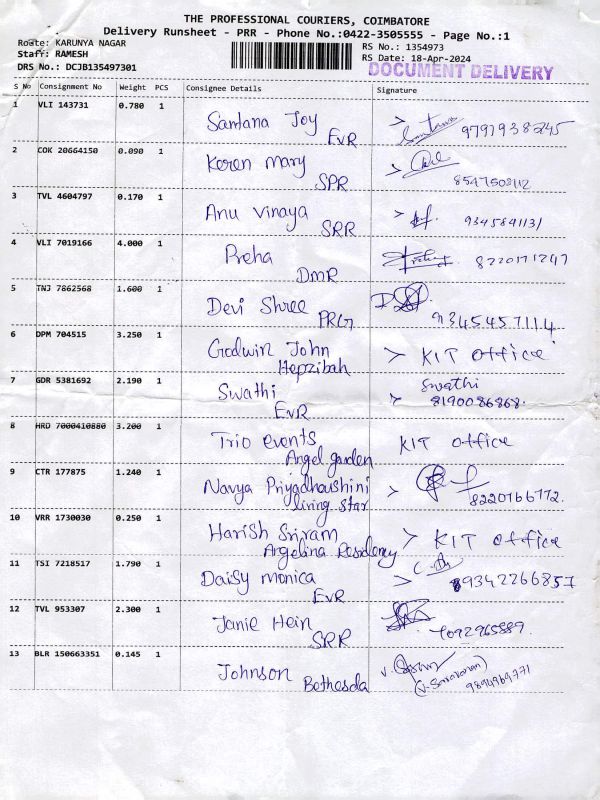 THE PROFESSIONAL COURIERS, COIMBATORE
Delivery Runsheet - PRR - Phone No.:0422-3505555 - Page No.:1
Route: KARUNYA NAGAR
RS No.: 1354973
Staff: RAMESH
RS Date: 18-Apr-2024
DRS No.: DCJB135497301
DOCUMENT DELIVERY
S No Consignment No Weight PCS Consignee Details Signature
1 VLI 143731 0.780 1 Santana Joy 9791938245
EVR
2 COK 20664150 0.090 1 Keren Mary
SPR 8547508112
3 TVL 4604797 0.170 1 Anu Vinaya
SRR 9345841131
4 VLI 7019166 4.000 1 Preha 8220171247
DMR
5 TNJ 7862568 1.600 1 Devi Shree
PRG 9345457114
6 DPM 704515 3.250 1 Godwin John KIT office
Hepzibah
7 GDR 5381692 2.190 1 Swathi Swathi
EVR 8190086868.
8 HRD 7000410880 3.200 1 Trio events KIT office
Angel garden
9 CTR 177875 1.240 1 Navya Priyadhaushini
living star 8220766772.
10 VRR 1730030 0.250 1 Harish Sriram KIT office
Angelina Residency
11 TSI 7218517 1.790 1 Daisy monica 9342266857
EVR
12 TVL 953307 2.300 1 Janie Hein
SRR 7092965889.
13 BLR 150663351 0.145 1 Johnson
Bethesda (J. Saravanan)
9894969771